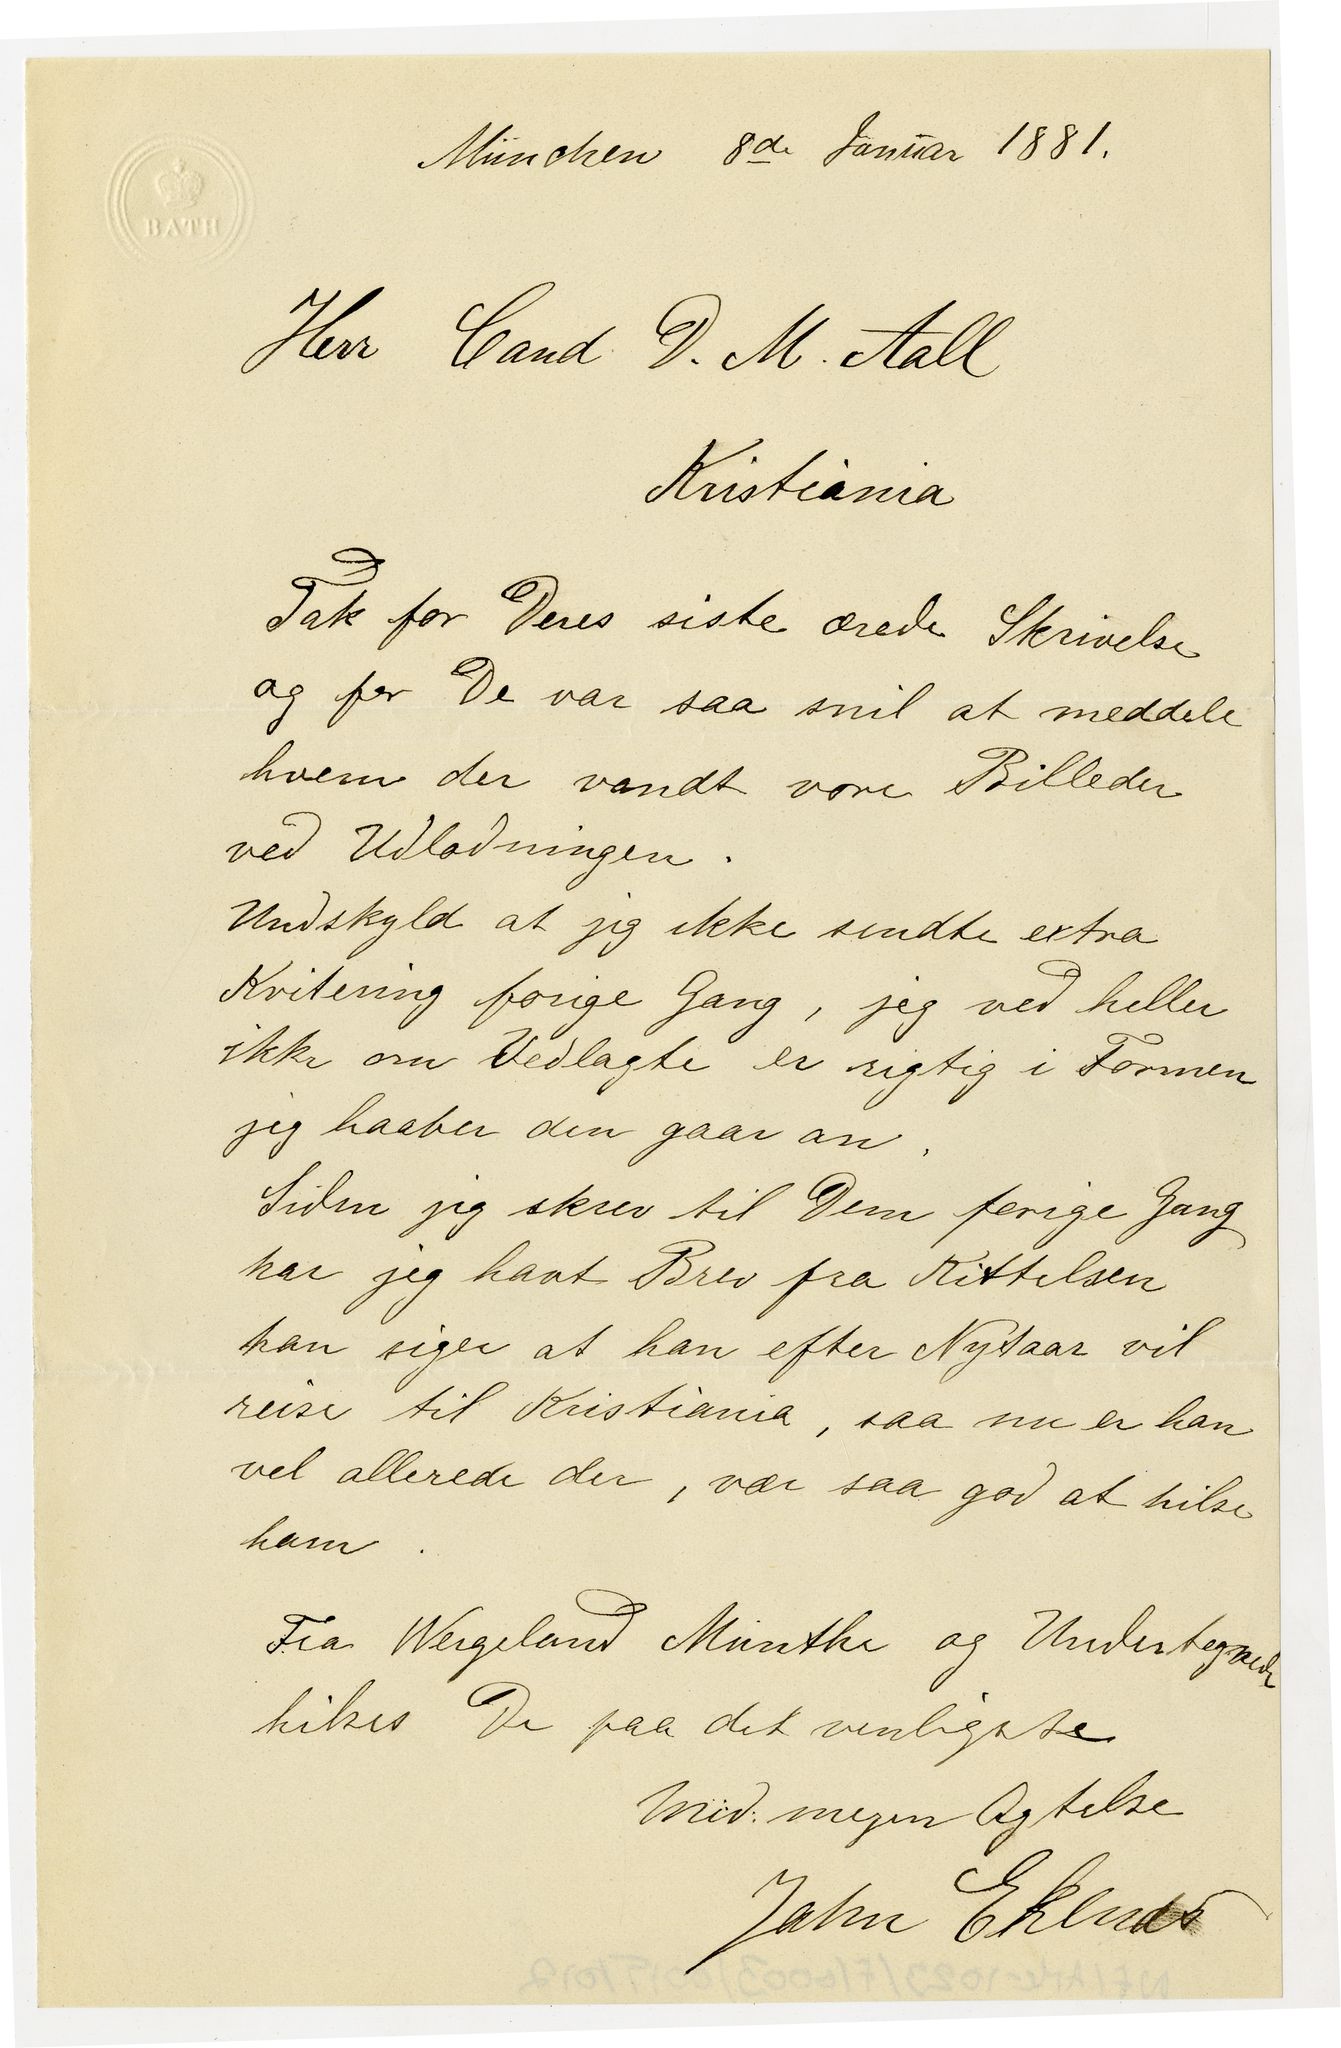 BATH
München 8de Januar 1881.
Herr Cand. D. M. Aall
Kristiania
Tak for Deres siste ærede Skrivelse
og for De var saa snil at meddele
hvem der vandt vore Billeder
ved Udlodningen.
Undskyld at jeg ikke sendte extra
Kvitering forige Gang, jeg ved heller
ikke om Vedlagte er rigtig i Formen
jeg haaber den gaar an.
Siden jeg skrev til Dem forige Gang
har jeg havt Brev fra Kittelsen
han siger at han efter Nytaar vil
reise til Kristiania, saa nu er han
vel allerede der, vær saa god at hilse
ham.
Fra Wergeland Munthe og Undertegnede
hilses De paa det venligste
Med megen Agtelse
John Ekenæs